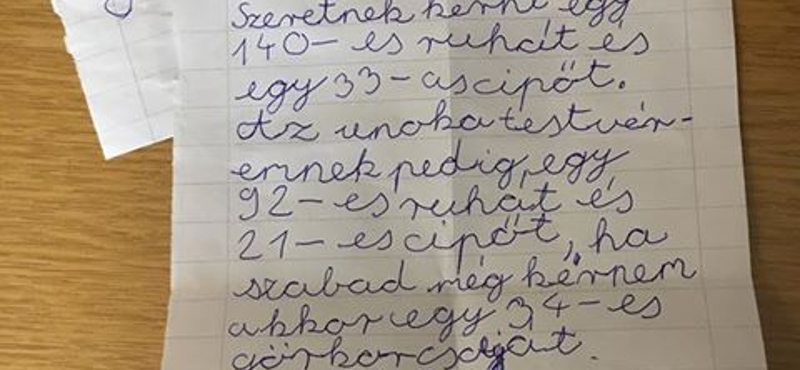 Szeretnék kérni egy
140-es ruhát és
egy 33-as cipőt.
Az unokatestvér-
emnek pedig, egy
92-es ruhát és
21-es cipőt, ha
szabad még kérnem
akkor egy 34-es
görkorcsoját.